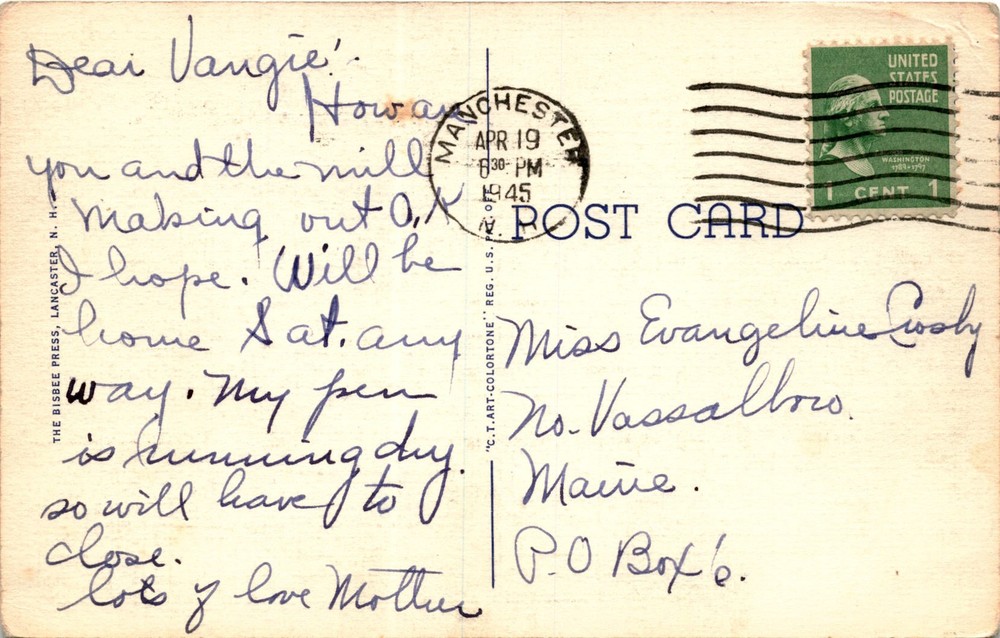 Dear Vangie!
How are
you and the mill
making out O.K
I hope. Will be
home Sat. any
way. My pen
is running dry.
so will have to
close.
lots of love Mother
THE BISBEE PRESS, LANCASTER, N. H.
"C.T. ART-COLORTONE" REG. U.S. PAT. OFF.
MANCHESTER
APR 19
6 30 PM
1945
N. H.
UNITED
STATES
POSTAGE
WASHINGTON
1789-1797
1 CENT 1
POST CARD
Miss Evangeline Crosby
No. Vassalboro.
Maine.
P.O Box 6.